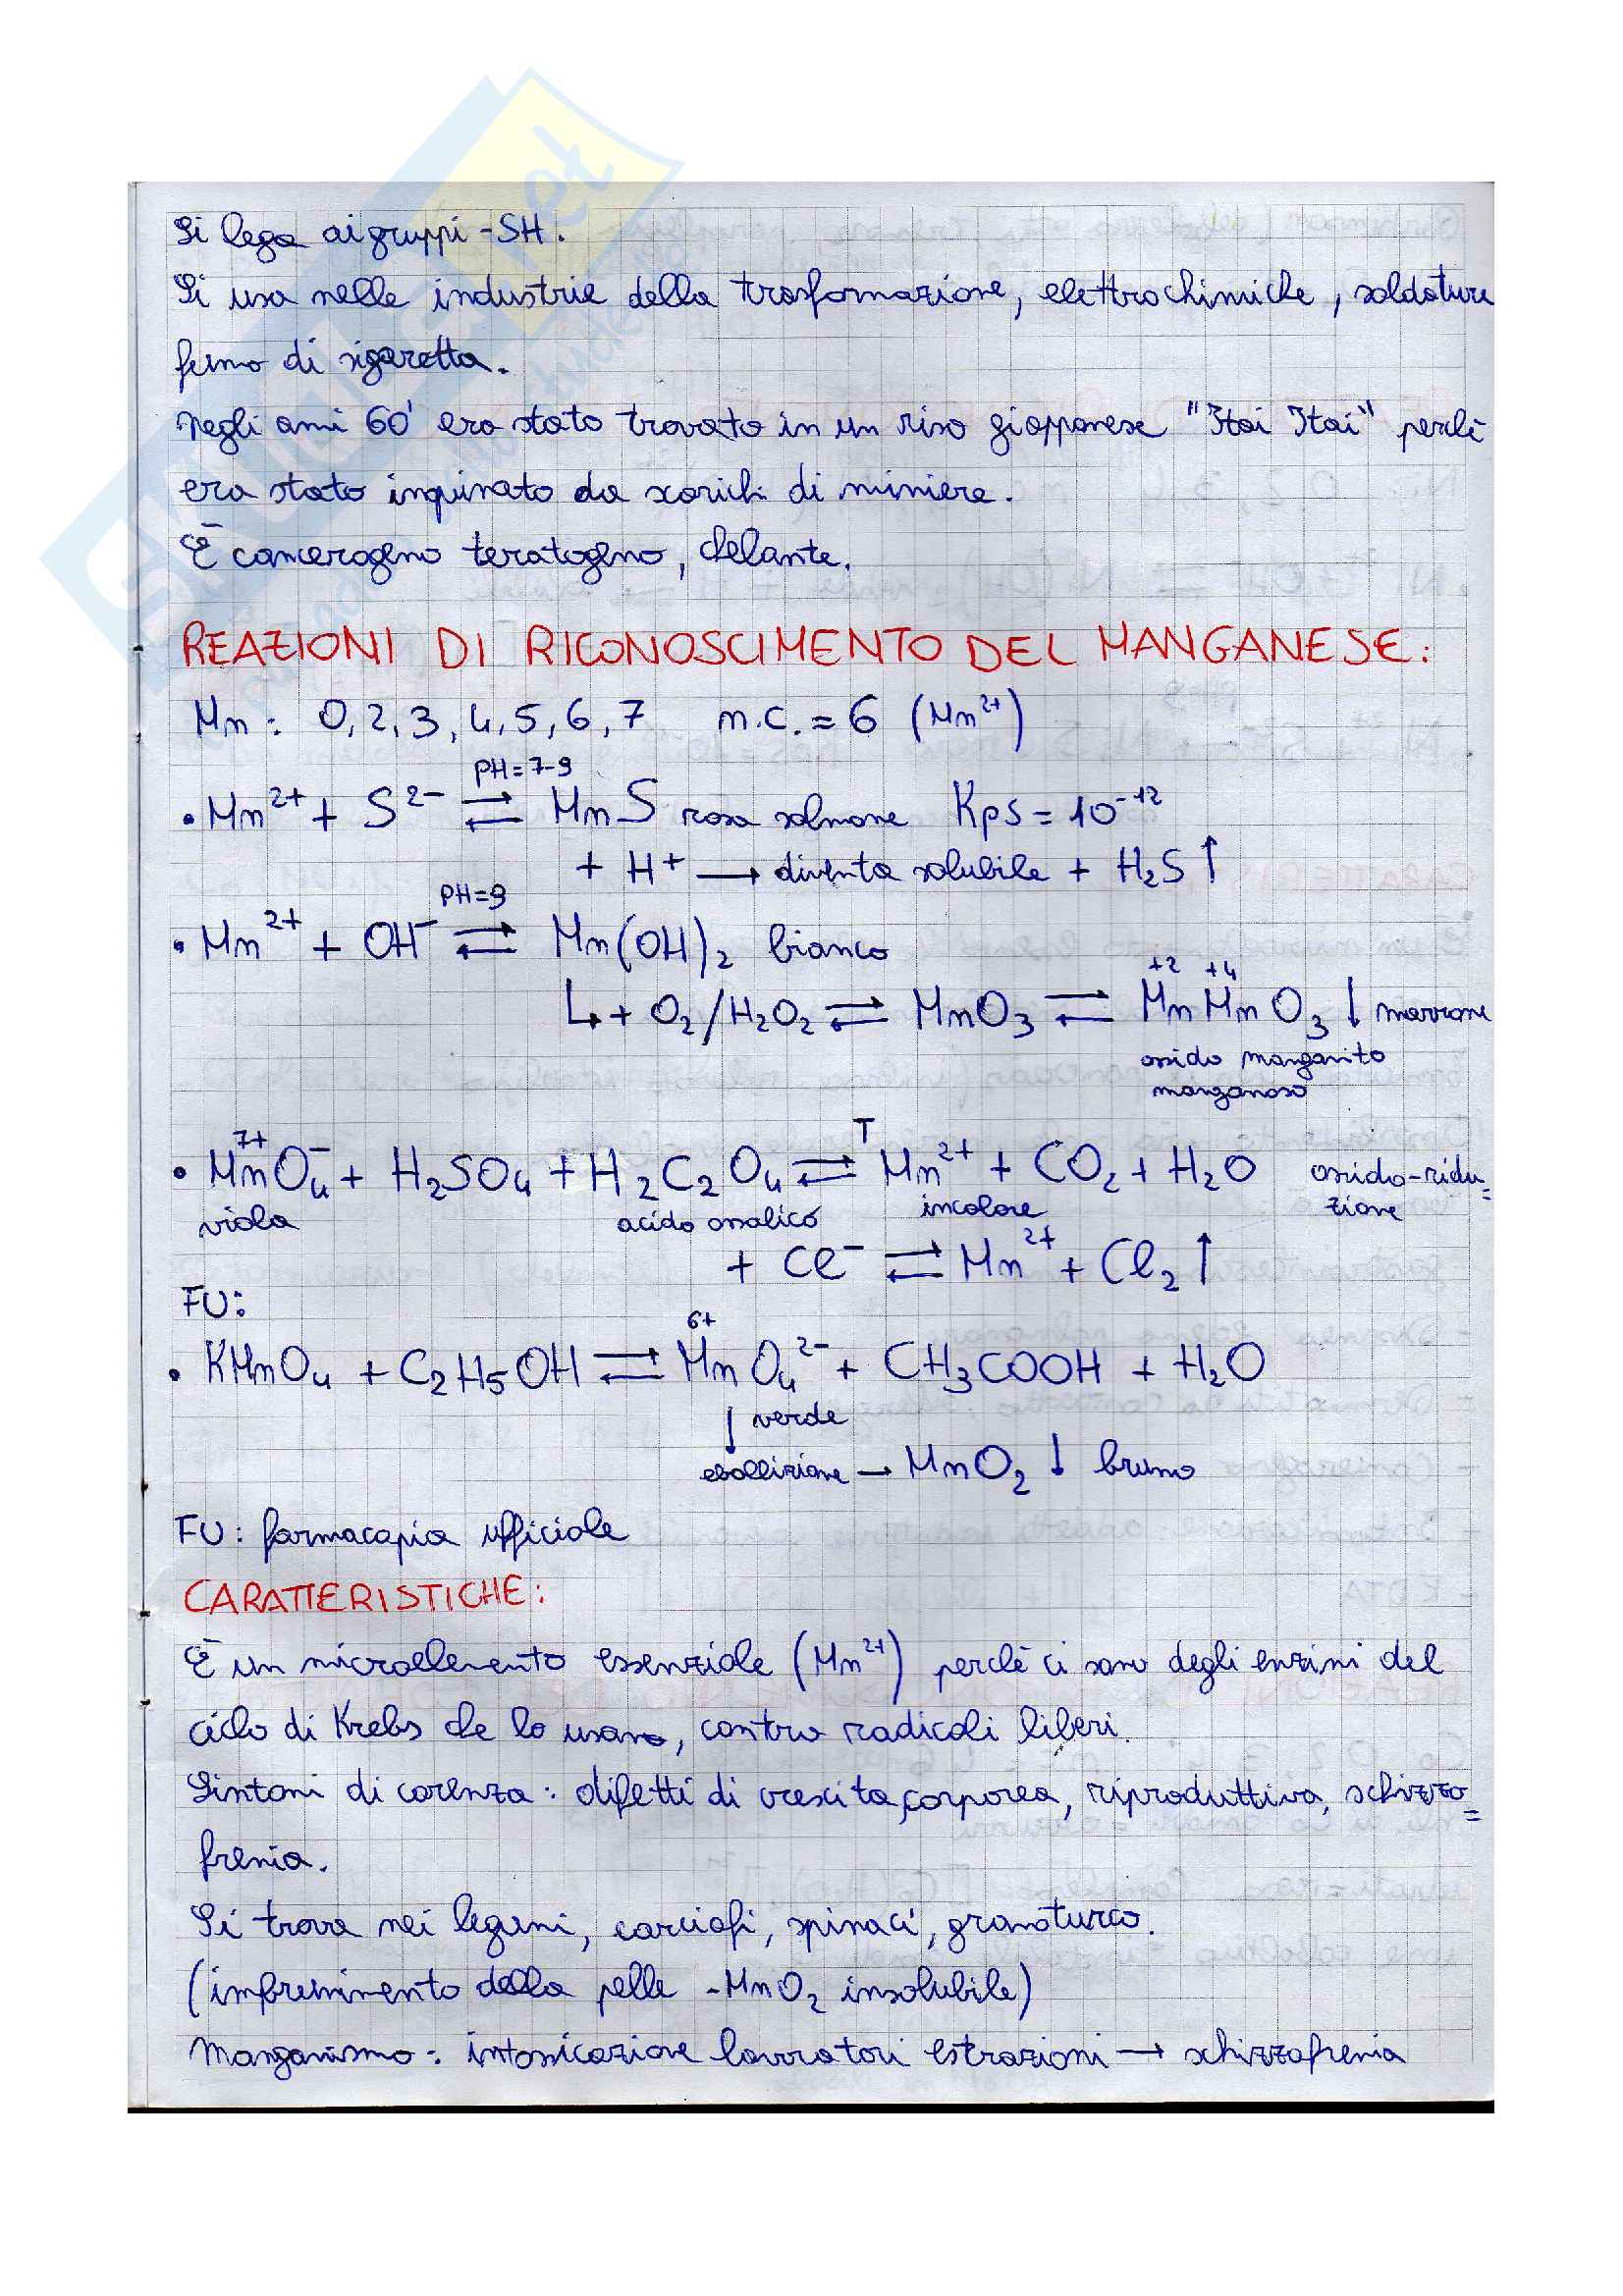 Si lega ai gruppi -SH.
Si usa nelle industrie della trasformazione, elettrochimiche, saldature
fumo di sigaretta.
Negli anni 60' era stato trovato in un riso giapponese "Itai Itai" perchè
era stato inquinato da scarichi di miniere.
È cancerogeno teratogeno, chelante.
REAZIONI DI RICONOSCIMENTO DEL MANGANESE:
Mn: 0, 2, 3, 4, 5, 6, 7 n.c. = 6 (Mn²⁺)
PH=7-9
• Mn²⁺ + S²⁻ ⇌ MnS rosa salmone Kps = 10⁻¹²
+ H⁺ → diventa solubile + H₂S ↑
PH=9
• Mn²⁺ + OH⁻ ⇌ Mn(OH)₂ bianco
+2 +4
↳ + O₂/H₂O₂ ⇌ MnO₃ ⇌ MnMnO₃ ↓ marrone
ossido manganito
manganoso
7+ T
• MnO₄⁻ + H₂SO₄ + H₂C₂O₄ ⇌ Mn²⁺ + CO₂ + H₂O ossido-ridu=
viola acido ossalico incolore zione
+ Cl⁻ ⇌ Mn²⁺ + Cl₂ ↑
FU:
6+
• KMnO₄ + C₂H₅OH ⇌ MnO₄²⁻ + CH₃COOH + H₂O
↓ verde
ebollizione → MnO₂ ↓ bruno
FU: farmacopia ufficiale
CARATTERISTICHE:
È un microelemento essenziale (Mn²⁺) perchè ci sono degli enzimi del
ciclo di Krebs che lo usano, contro radicali liberi.
Sintomi di carenza: difetti di crescita corporea, riproduttiva, schizzo=
frenia.
Si trova nei legumi, carciofi, spinaci, granoturco.
(imbrunimento della pelle - MnO₂ insolubile)
Manganismo: intossicazione lavoratori estrazioni → schizzofrenia